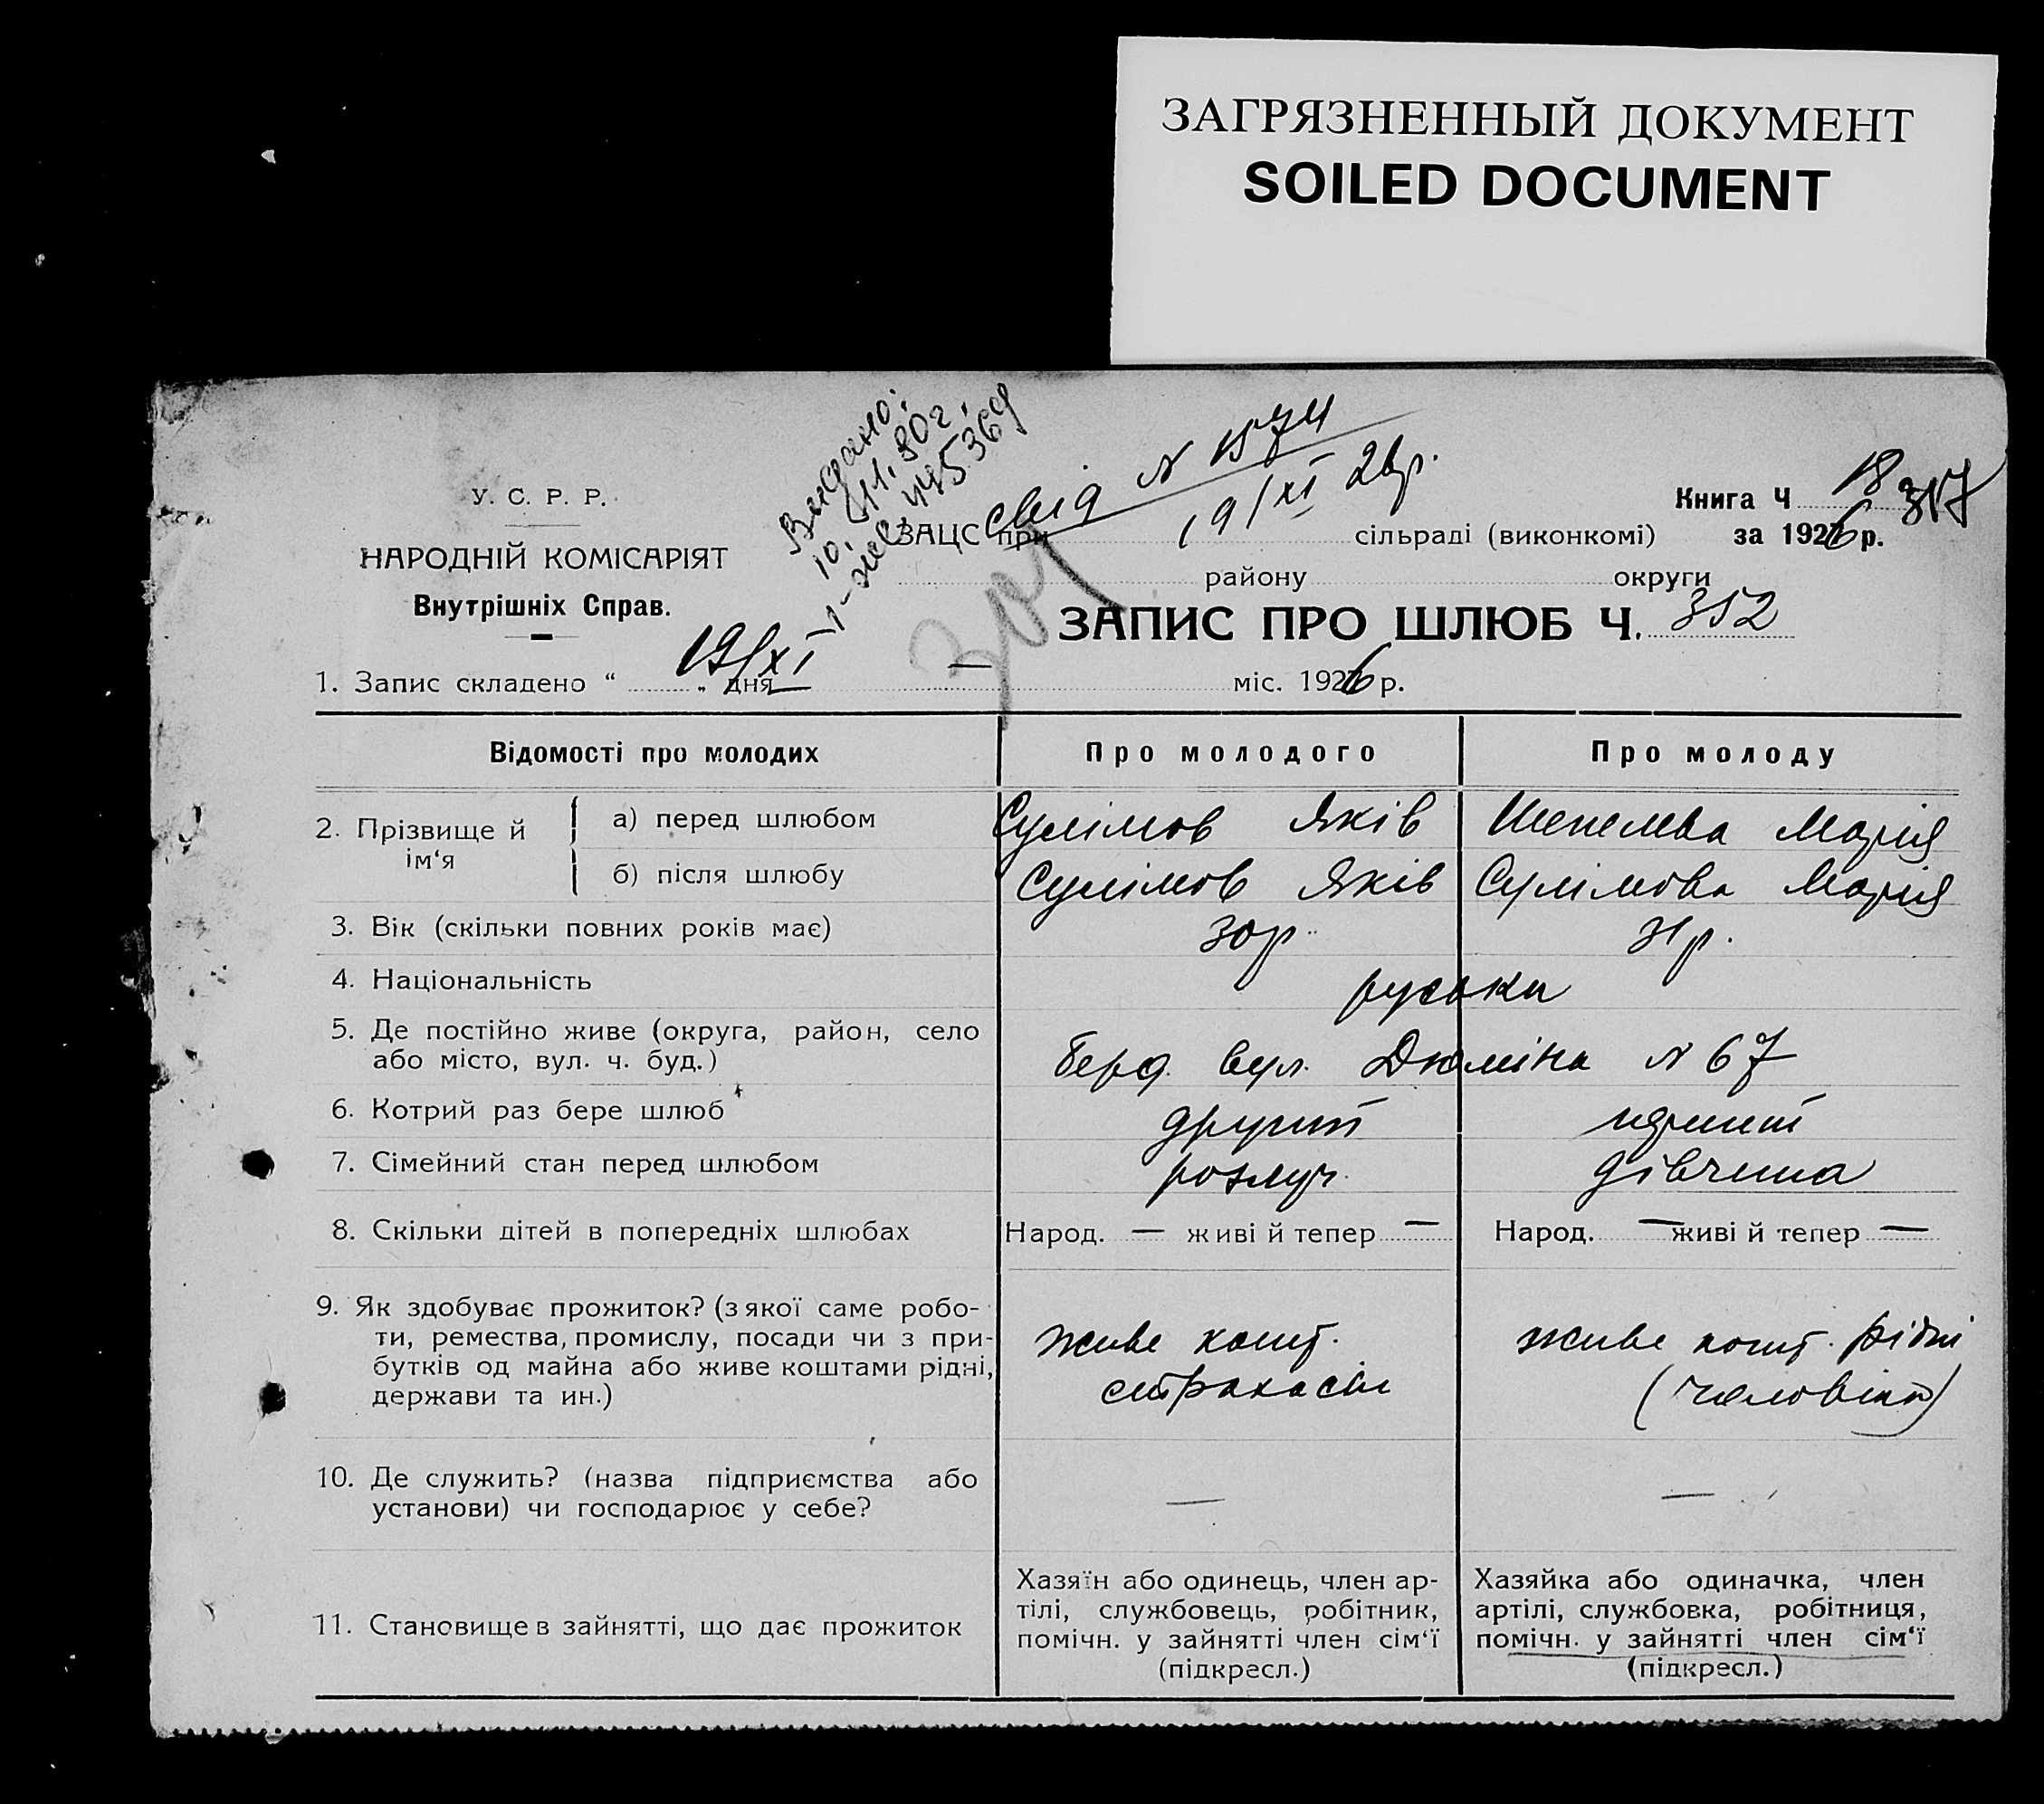 ЗАГРЯЗНЕННЫЙ ДОКУМЕНТ
SOILED DOCUMENT
Видано:
10. 11. 80 г.
445369
свід N 1574
19/XI 26р.
У. С. Р. Р.
НАРОДНІЙ КОМІСАРІЯТ
Внутрішніх Справ.
Книга Ч 18 317
ЗАЦС при сільраді (виконкомі) за 1926 р.
району округи
ЗАПИС ПРО ШЛЮБ Ч. 352
1. Запис складено “ 19/XI „ дня — міс. 1926 р.
Відомості про молодих Про молодого Про молоду
2. Прізвище й ім‘я
а) перед шлюбом Сулімов Яків Шепелева Марія
б) після шлюбу Сулімов Яків Сулімова Марія
3. Вік (скільки повних років має) 30р. 31р.
4. Національність руськи
5. Де постійно живе (округа, район, село
або місто, вул. ч. буд.) Берд. вул. Дюміна N 67
6. Котрий раз бере шлюб другий перший
7. Сімейний стан перед шлюбом розлуч. дівчина
8. Скільки дітей в попередніх шлюбах Народ. — живі й тепер — Народ. — живі й тепер —
9. Як здобуває прожиток? (з якої саме робо-
ти, ремества, промислу, посади чи з при-
бутків од майна або живе коштами рідні,
держави та ин.)
живе кошт.
страхкаси
живе кошт. рідні
(чоловіка)
10. Де служить? (назва підприємства або
установи) чи господарює у себе? — —
11. Становище в зайнятті, що дає прожиток
Хазяїн або одинець, член ар-
тілі, службовець, робітник,
помічн. у зайнятті член сім‘ї
(підкресл.)
Хазяйка або одиначка, член
артілі, службовка, робітниця,
помічн. у зайнятті член сім‘ї
(підкресл.)